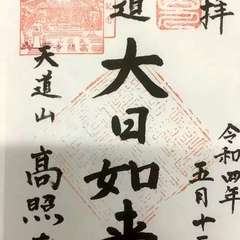 拝
令和四年
五月十
道
大日如来
天道山
高照